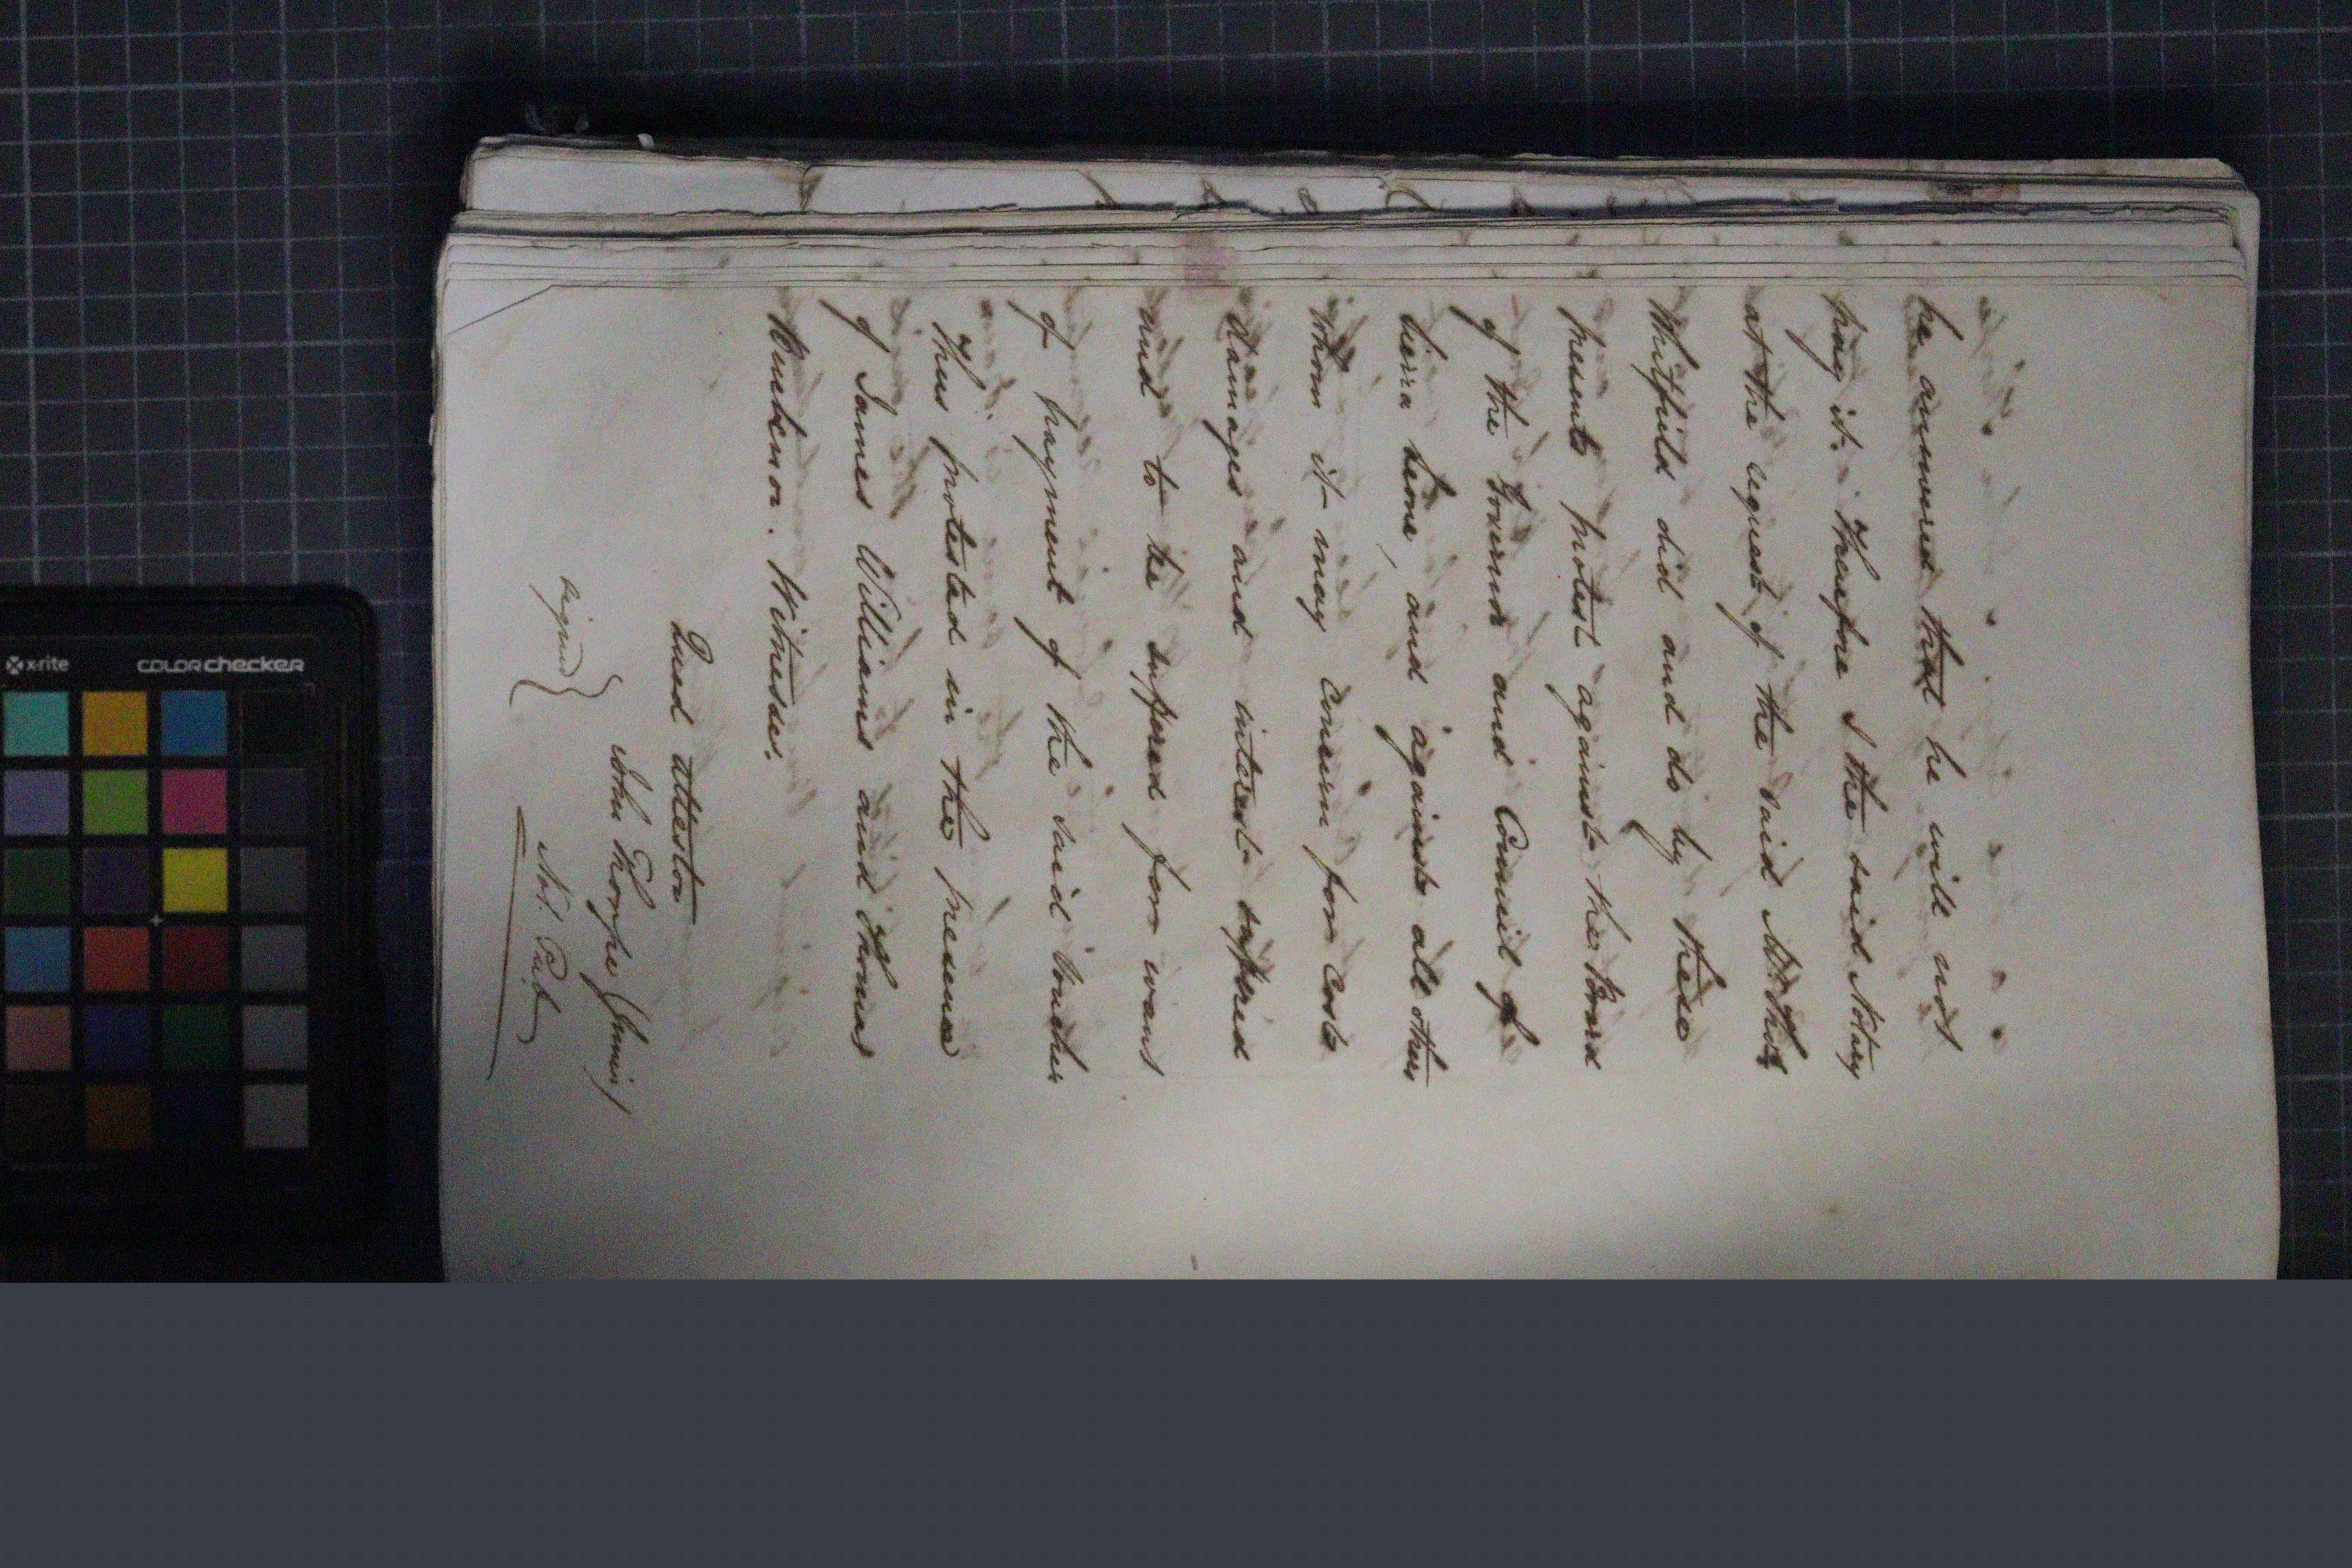 he answered that he will not
pay it. Therefore I the said Notary
at the request of the said Mr. Thos.
Whitfield did and do by these
presents protest against the Board
of the Governor and Council of
Sierra Leone, and against all others
whom it may Concern for Costs
damages and interest suffered
and to be suffered for want
of payment of the said Voucher
Thus protested in the presence
of James Williams and Thomas
Witnesses.
Quod attestor
signed} John Thorpe Junior
Not. Pub.
x-rite
colorchecker